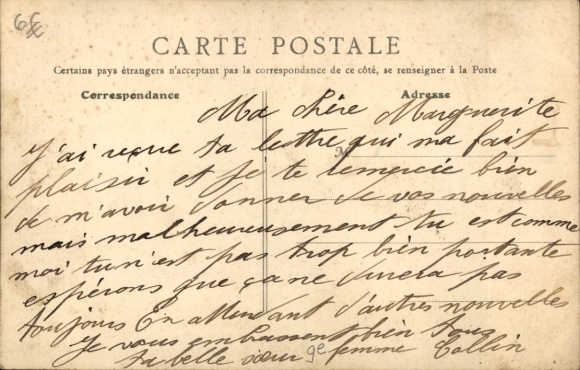 6€
CARTE POSTALE
Certains pays étrangers n'acceptant pas la correspondance de ce côté, se renseigner à la Poste
Correspondance
Adresse
Ma chère Marguerite
J'ai reçue ta lettre qui ma fait
plaisir et je te remercie bien
de m'avoir donner de vos nouvelles
mais malheureusement tu est comme
moi tu n'est pas trop bien portante
espérons que ça ne durera pas
toujours En attendant d'autres nouvelles
Je vous embrassent bien tous
ta belle sœur femme Collin